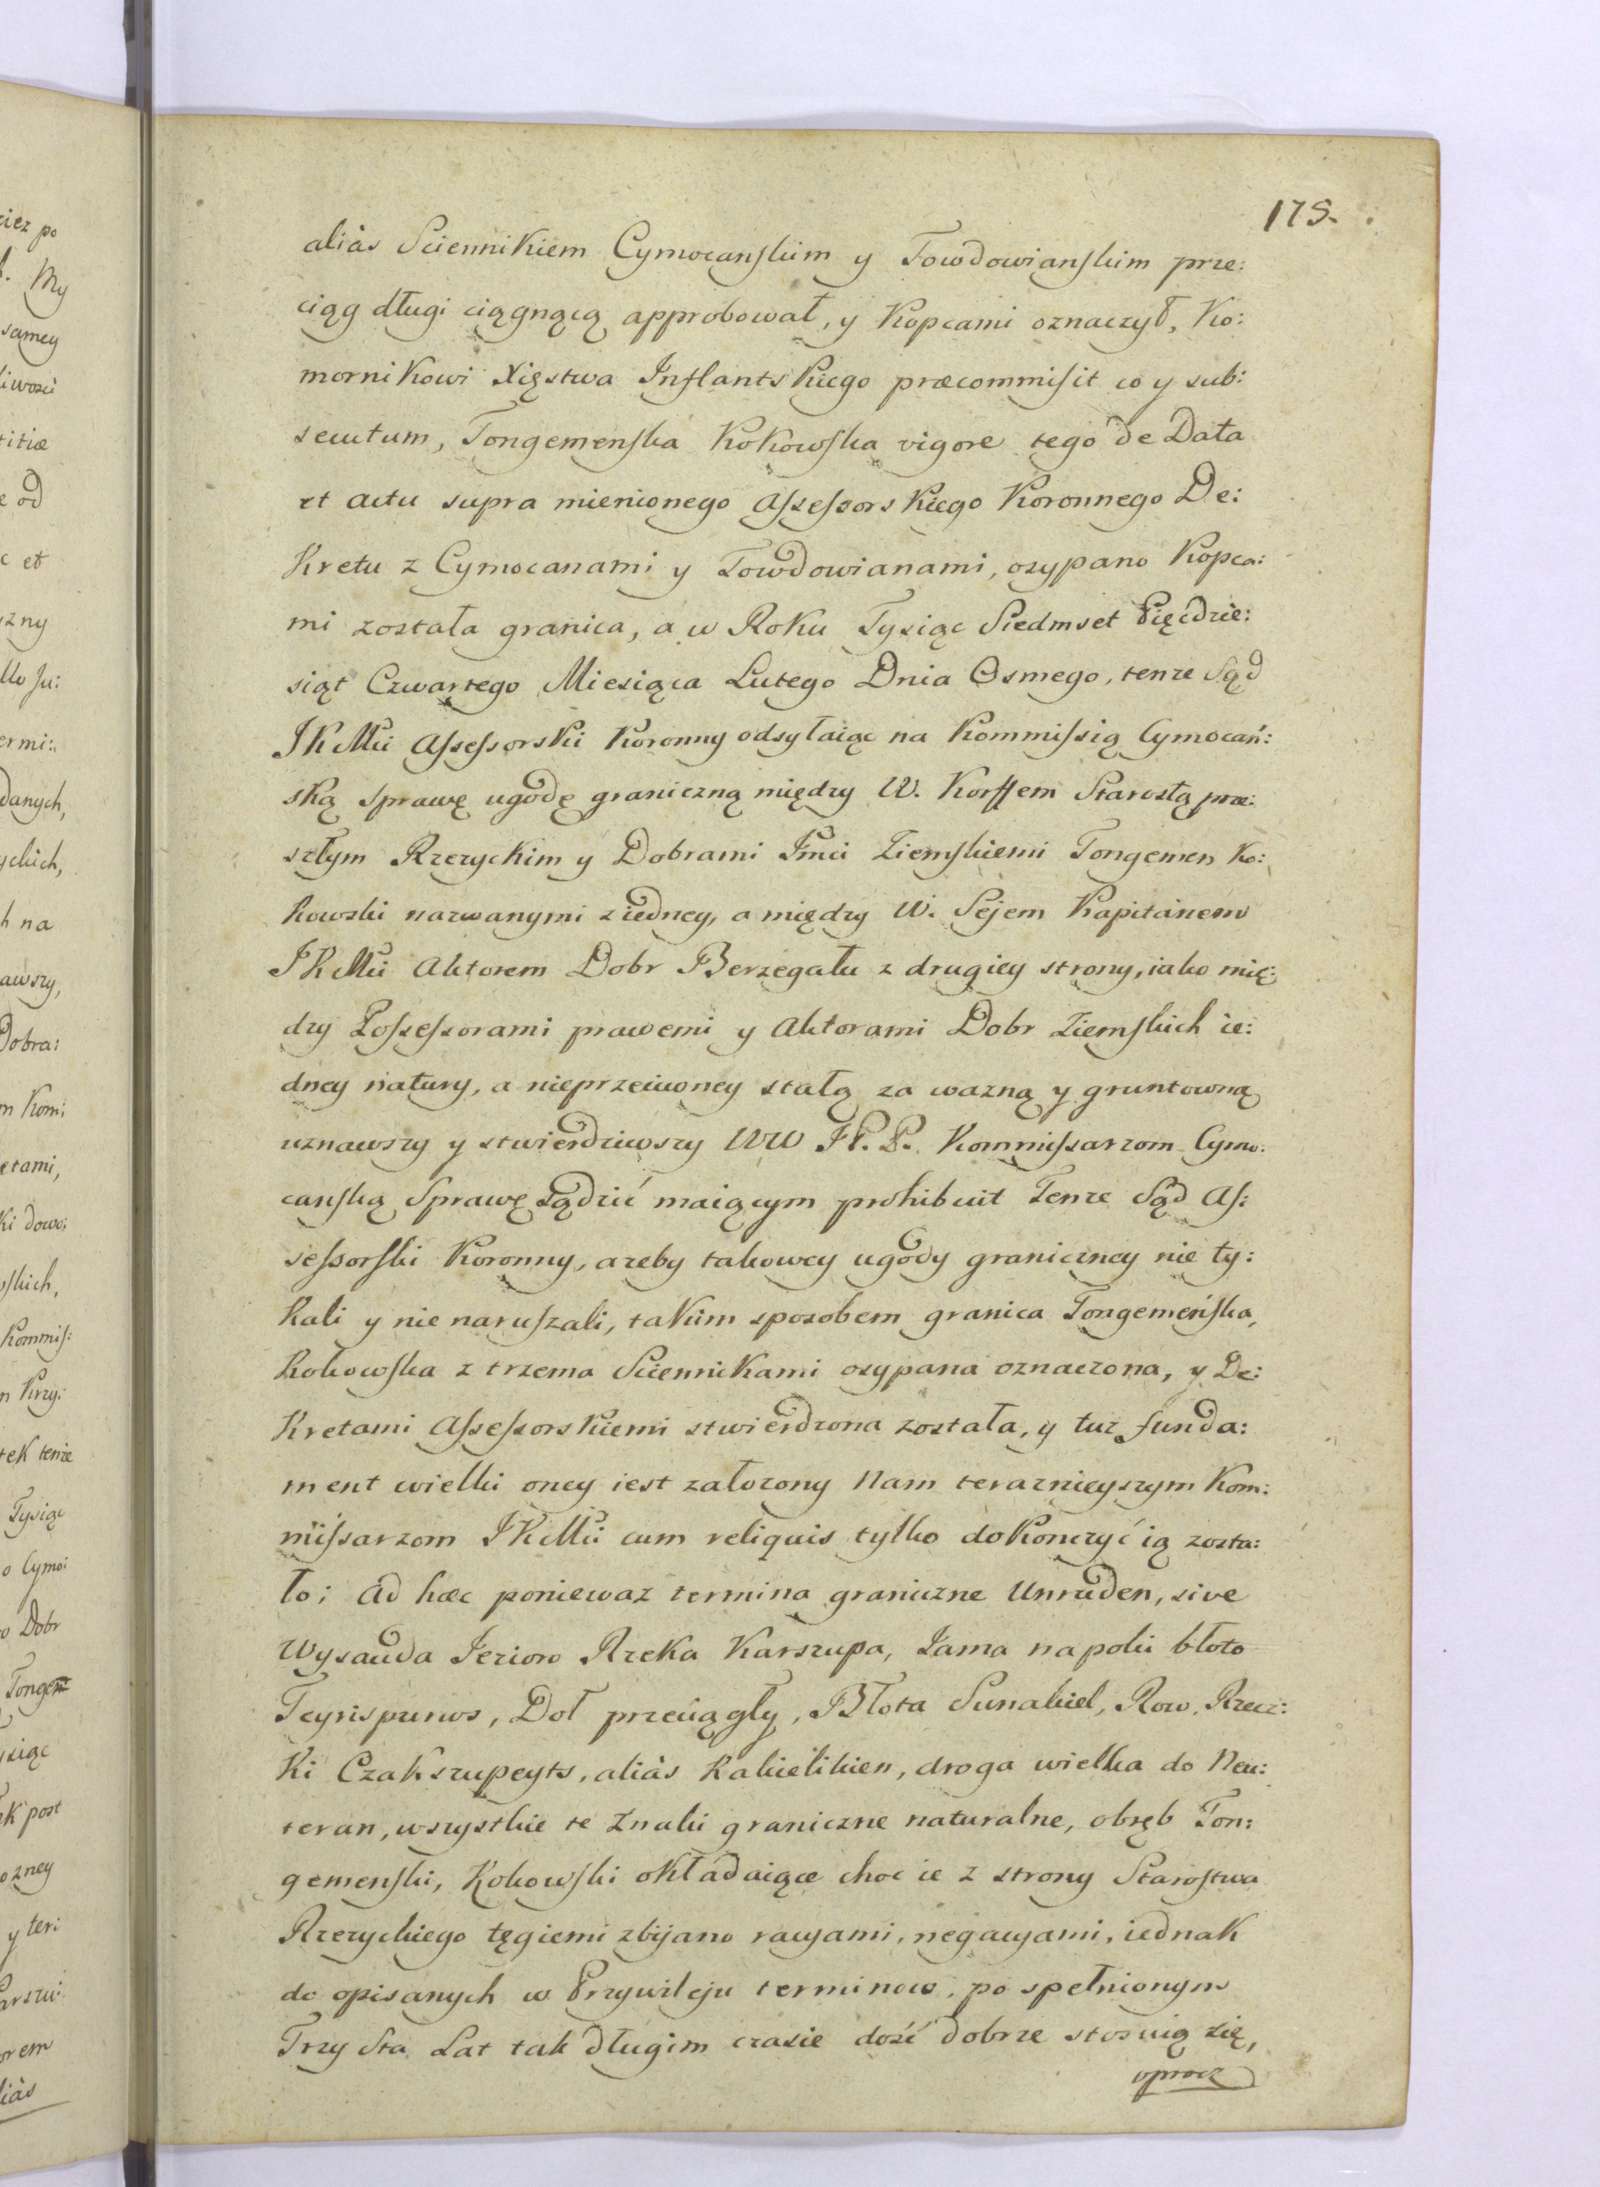 175.
aliàs Sciennikiem Cymocanskim y Towdowianskim prze:
ciąg długi ciągnącą approbował, y Kopcami oznaczył, Ko:
mornikowi Xięstwa Inflantskiego præcommisit co y sub:
secutum, Tongemenska Kokowska vigore tego de Data
et actu supra mienionego Assessorskiego Koronnego De:
kretu z Cymocanami y Towdowianami, osypano Kopca:
mi została granica, a w Roku Tysiąc Siedmset Pięcdzie:
siąt Czwartego Miesiąca Lutego Dnia Osmego, tenze Sąd
JKMci Assessorski Koronny odsyłaiąc na Kommissią Cymocań:
ską sprawę ugodę graniczną między W. Korffem Starostą prze:
szłym Rzezyckim y Dobrami Jmci Ziemskiemi Tongemen Ko:
kowski nazwanymi z iedney, a między W. Sejem Kapitanem
JKMci Aktorem Dobr Berzegału z drugiey strony, iako mię:
dzy Possessorami prawemi y Aktorami Dobr Ziemskich ie:
dney natury, a nieprzeciwney stałą za wazną y gruntowną
uznawszy y stwierdziwszy WW JP. P. Kommissarzom Cymo:
canską Sprawę Sądzić maiącym prohibuit Tenze Sąd As:
sessorski Koronny, azeby takowey ugody graniczney nie ty:
kali y nie naruszali, takim sposobem granica Tongemeńska,
Kokowska z trzema Sciennikami osypana oznaczona, y De:
kretami Assessorskiemi stwierdzona została, y tuz funda:
ment wielki oney iest załozony Nam teraznieyszym Kom:
missarzom JKMci cum reliquis tylko dokonczyć ią zosta:
ło; Ad hæc poniewaz termina graniczne Unruden, sive
Wysauda Jezioro Rzeka Karszupa, Jama na polu błoto
Teyrispurws, Doł przeciągły, Błota Sunakiel, Row, Rzecz:
ki Czakszupeyts, aliàs Kakielikien, droga wielka do Neu:
teran, wszystkie te Znaki graniczne naturalne, obręb Ton:
gemenski, Kokowski okładaiące choc ie z strony Starostwa
Rzezyckiego tęgiemi zbijano racyami, negacyami, iednak
do opisanych w Przywileju terminow, po spełnionym
Trzy Sta Lat tak długim czasie dość dobrze stosuią się,
oprocz